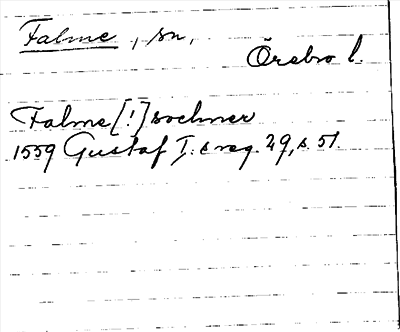 Falme, sn,
Örebro l.
Falme [!] sochner
1559 Gustaf I:s reg. 29, s. 51.